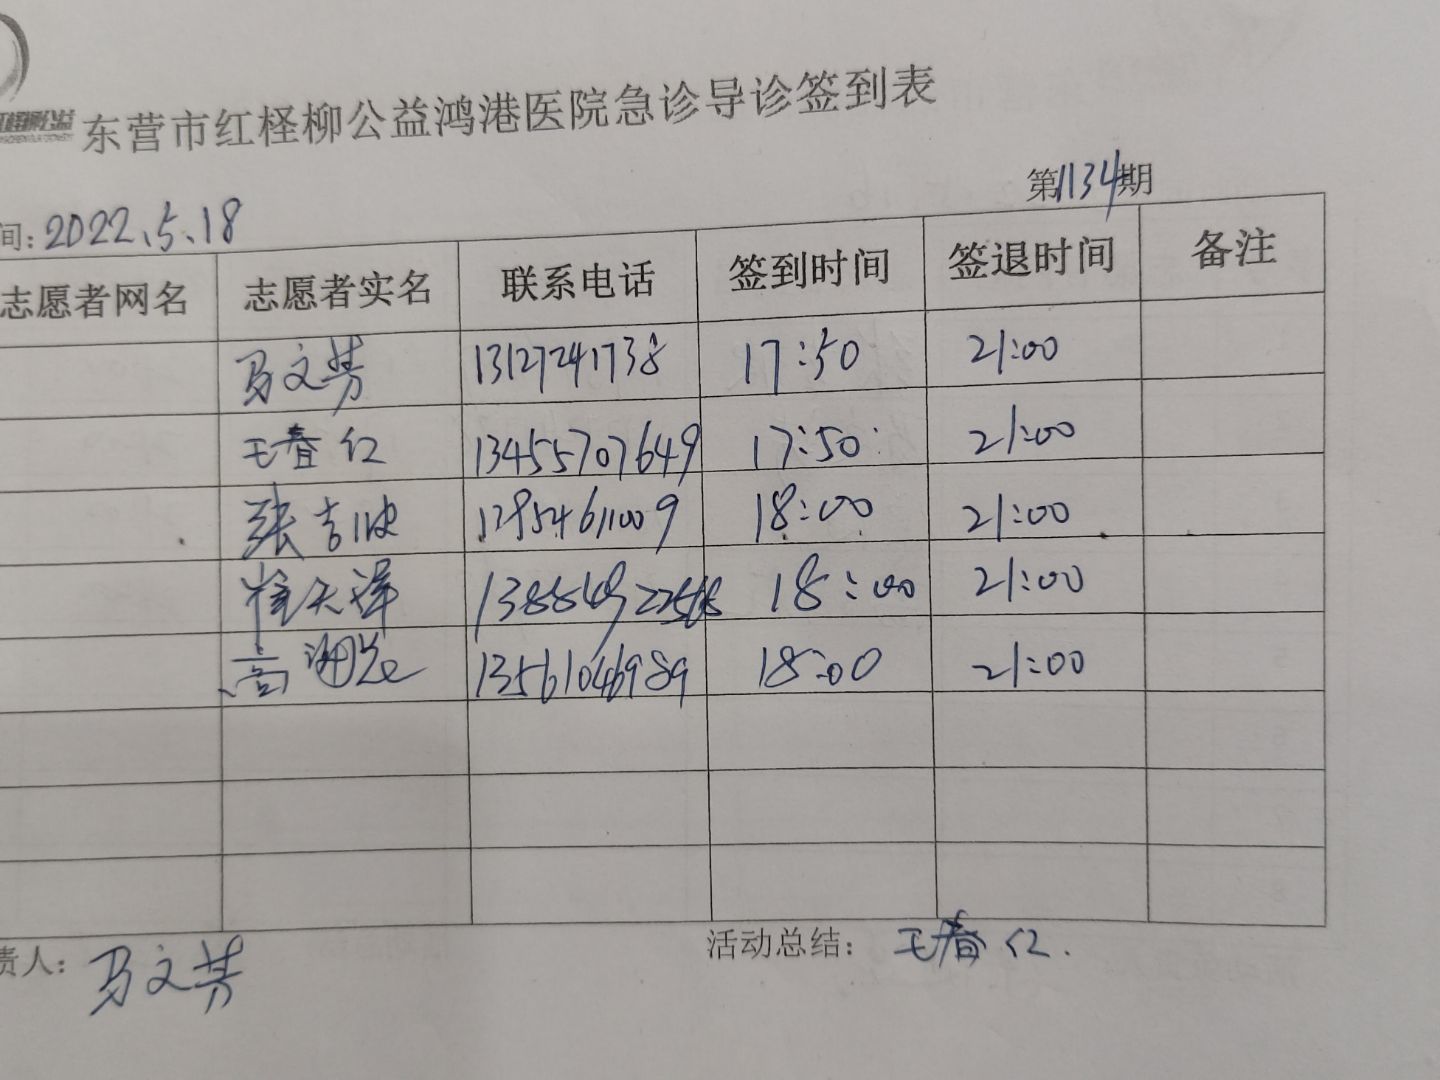 东营市红柽柳公益鸿港医院急诊导诊签到表
第1134期
间: 2022.5.18
志愿者网名 志愿者实名 联系电话 签到时间 签退时间 备注
马文芳 13127241738 17:50 21:00
王春红 13455707649 17:50 21:00
张吉波 18:00 21:00
崔天泽 18:00 21:00
高 13561046989 18:00 21:00
责人: 马文芳 活动总结: 王春红.